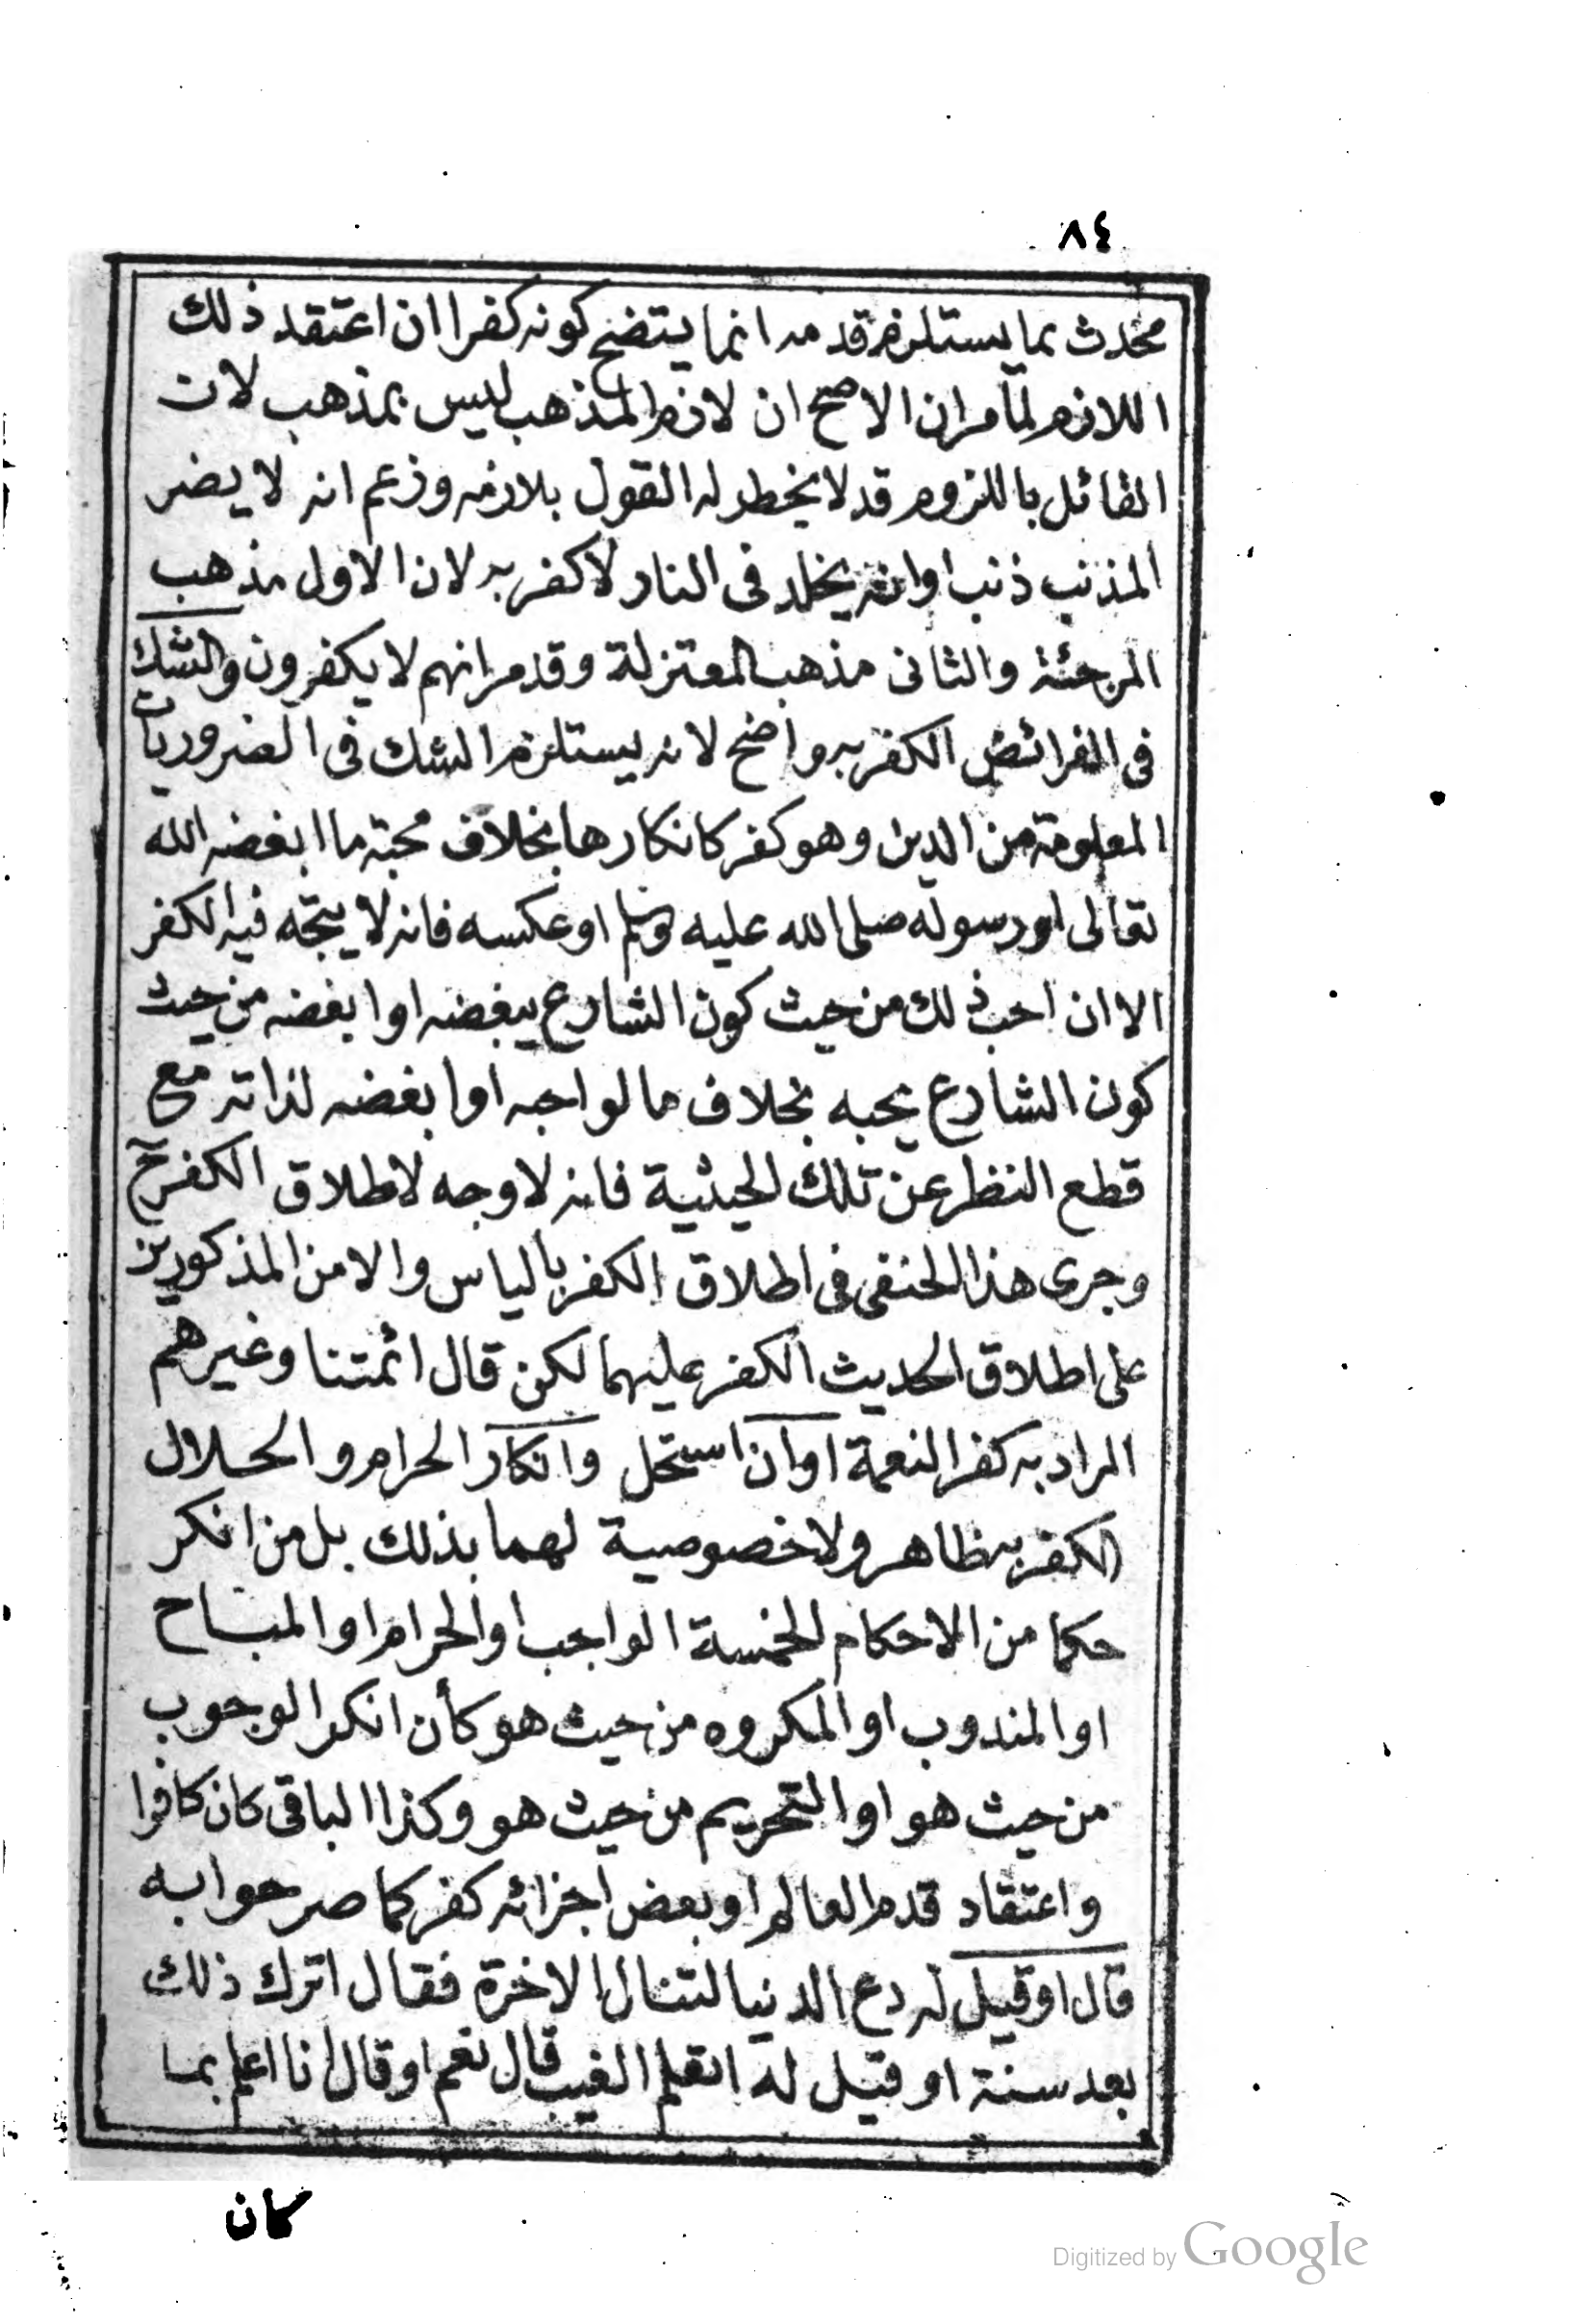 ٨٤
محدث بما يستلزم قدمه انما يتضح كونه كفرا ان اعتقد ذلك
اللازم لما مر ان الاصح ان لازم المذهب ليس بمذهب لان
القائل بالملزوم قد لا يخطر له القول بلازمه وزعم انه لا يضر
المذنب ذنب او انه يخلد فى النار لا كفر به لان الاول مذهب
المرجئة والثانى مذهب المعتزلة وقد مر انهم لا يكفرون والشك
فى الفرائض الكفر به واضح لانه يستلزم الشك فى الضروريات
المعلومة من الدين وهو كفر كانكارها بخلاف محبة ما ابغضه الله
تعالى او رسوله صلى الله عليه وسلم او عكسه فانه لا يتجه فيه الكفر
الا ان احب ذلك من حيث كون الشارع يبغضه او ابغضه من حيث
كون الشارع يحبه بخلاف ما لو احبه او ابغضه لذاته مع
قطع النظر عن تلك الحيثية فانه لا وجه لاطلاق الكفر ح
وجرى هذا الحنفى فى اطلاق الكفر بالياس والامن المذكورين
على اطلاق الحديث الكفر عليهما لكن قال ائمتنا وغيرهم
المراد به كفر النعمة او ان استحل وانكار الحرام والحلال
الكفر به ظاهر ولا خصوصية لهما بذلك بل من انكر
حكما من الاحكام الخمسة الواجب او الحرام او المباح
او المندوب او المكروه من حيث هو كأن انكر الوجوب
من حيث هو او التحريم من حيث هو وكذا الباقى كان كافرا
واعتقاد قدم العالم او بعض اجزائه كفر كما صرحوا به
قال او قيل له دع الدنيا لتنال الاخرة فقال اترك ذلك
بعد سنة او قيل له اتعلم الغيب قال نعم او قال انا اعلم بما
كان
Digitized by Google